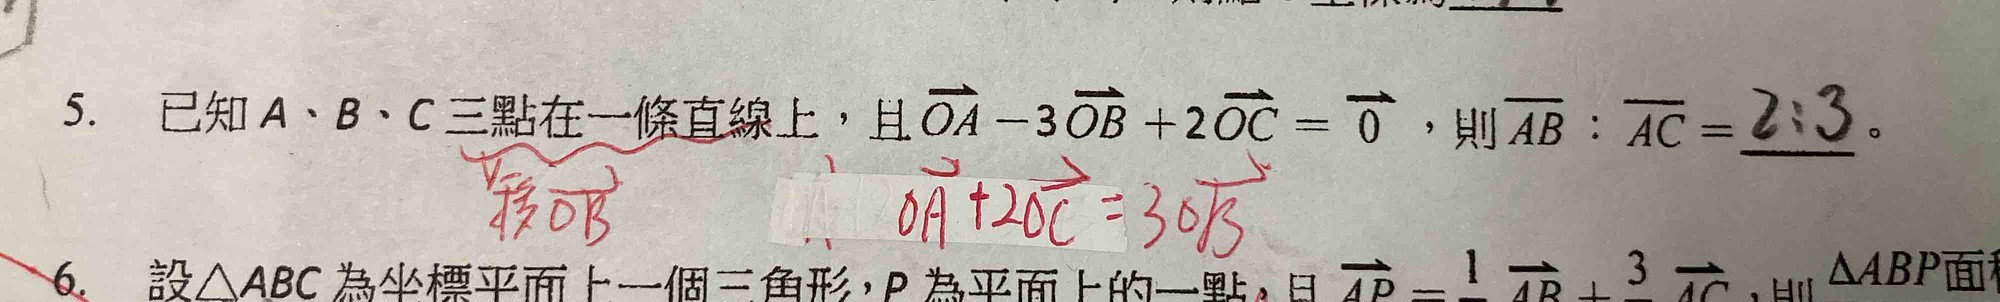 5. 已知 A、B、C 三點在一條直線上，且 $\overrightarrow{OA}-3\overrightarrow{OB}+2\overrightarrow{OC}=\overrightarrow{0}$，則 $\overline{AB}:\overline{AC}=$ 2:3。
移 $\overrightarrow{OB}$ $\overrightarrow{OA}+2\overrightarrow{OC}=3\overrightarrow{OB}$
6. 設△ABC 為坐標平面上一個三角形，P 為平面上的一點，且 $\overrightarrow{AP}=$ 1 $\overrightarrow{AB}+$ 3 $\overrightarrow{AC}$，則 ΔABP面